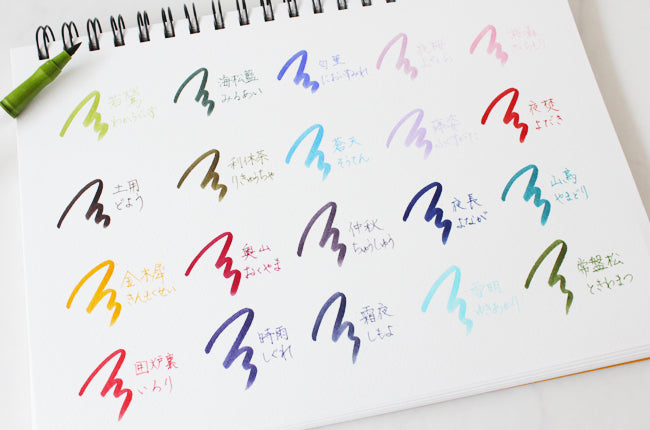 若鶯
わかうぐいす
海松藍
みるあい
匂菫
においすみれ
夜桜
よざくら
桜森
さくらもり
土用
どよう
利休茶
りきゅうちゃ
蒼天
そうてん
藤姿
ふじすがた
夜焚
よだき
金木犀
きんもくせい
奥山
おくやま
仲秋
ちゅうしゅう
夜長
よなが
山鳥
やまどり
囲炉裏
いろり
時雨
しぐれ
霜夜
しもよ
雪明
ゆきあかり
常盤松
ときわまつ